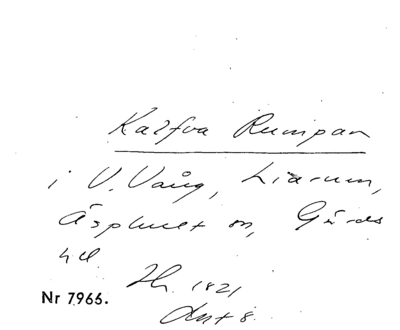 Kalfva Rumpan
i V. Vång, Liarum,
Äsphult sn, Gärds
hd.
Nr 7966. Hr. 1821
Akt 8.